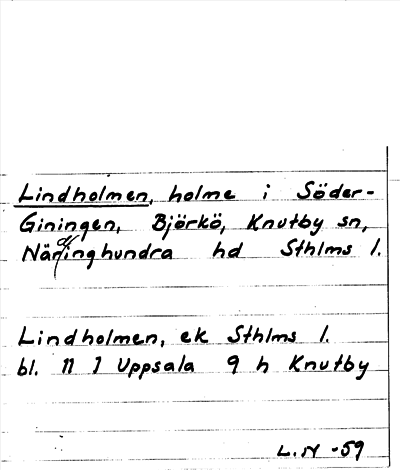 Lindholmen, holme i Söder-
Giningen, Björkö, Knutby sn,
Närdinghundra hd Sthlms l.
Lindholmen, ek Sthlms l.
bl. 11 I Uppsala 9 h Knutby
L. N -59